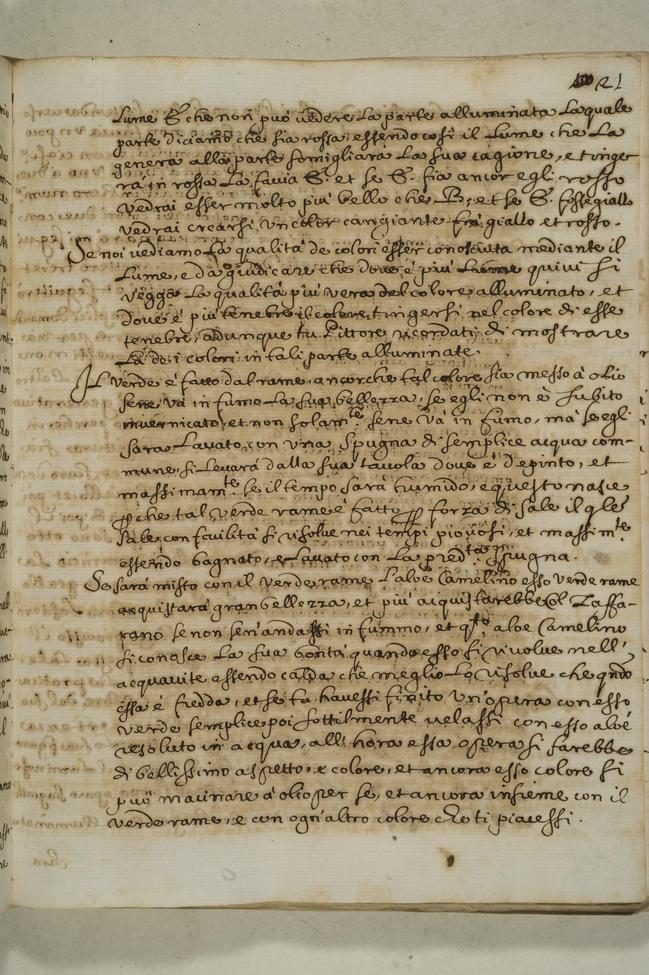 21
lume S che non può vedere la parte alluminata la quale
parte diciamo che sia rossa, essendo così il lume che la
genera alla parte simigliarà la sua cagione, e tinger
rà in rosso la favia S. et se S. sia ancor egli rosso
vedrai esser molto più bello che B; et se S. fosse giallo
vedrai crearsi un color cangiante fra giallo et rosso.
Se noi vediamo la qualità de colori esser conosciuta mediante il
lume, e da giudicare che dove è più lume quivi si
vegga la qualità più vera del colore alluminato, et
dove è più tenebre il colore tingersi nel colore di esse
tenebre, adunque tu Pittore ricordati di mostrare
de i colori in tali parte alluminate.
Il verde è fatto dal rame, ancorche tal colore sia messo à olio
sene và in fumo la sua bellezza, se egli non è subito
invernicato, et non solam.te sene và in fumo, mà se egli
sarà lavato, con una spugna di semplice acqua com-
mune, si levarà dalla sua tavola dove è depinto, et
massimam.te se il tempo sarà humido, e questo nasce
p che tal verde rame è fatto p forza di sale il qle
sale con facilità si risolve nei tempi piovosi, et massim.te
essendo bagnato, e lavato con la pred.ta spugna.
Se sarà misto con il verde rame l'aloe Camelino esso verde rame
acquistarà gran bellezza, et più acquistarebbe col Zaffa-
rano se non sen'andassi in fummo, et qsto aloe Camelino
si conosce la sua bontà quando esso si rivolve nell'
acquavite essendo calda che meglio lo risolve che qndo
essa è fredda, et se tu havessi finito un'opera con esso
verde semplice poi sottilmente velassi con esso aloè
resoluto in acqua, all'hora essa opera si farebbe
di bellissimo aspetto, e colore, et ancora esso colore si
può macinare à olio per se, et ancora insieme con il
verde rame, e con ogn'altro colore che ti piacessi.